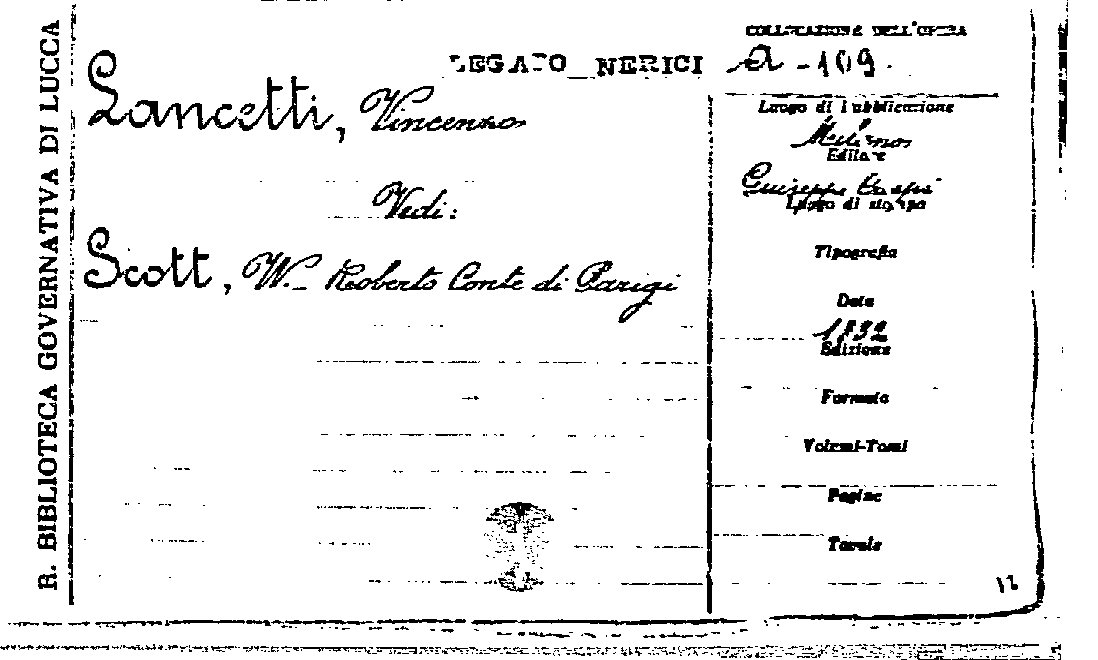 R. BIBLIOTECA GOVERNATIVA DI LUCCA
COLLOCAZIONE DELL'OPERA
LEGATO NERICI
a - 109.
Lancetti, Vincenzo
Vedi:
Scott, W. - Roberto Conte di Parigi
Luogo di pubblicazione
Milano
Editore
Giuseppe Crespi
Luogo di stampa
Tipografia
Data
1832
Edizione
Formato
Volumi-Tomi
Pagine
Tavole
12